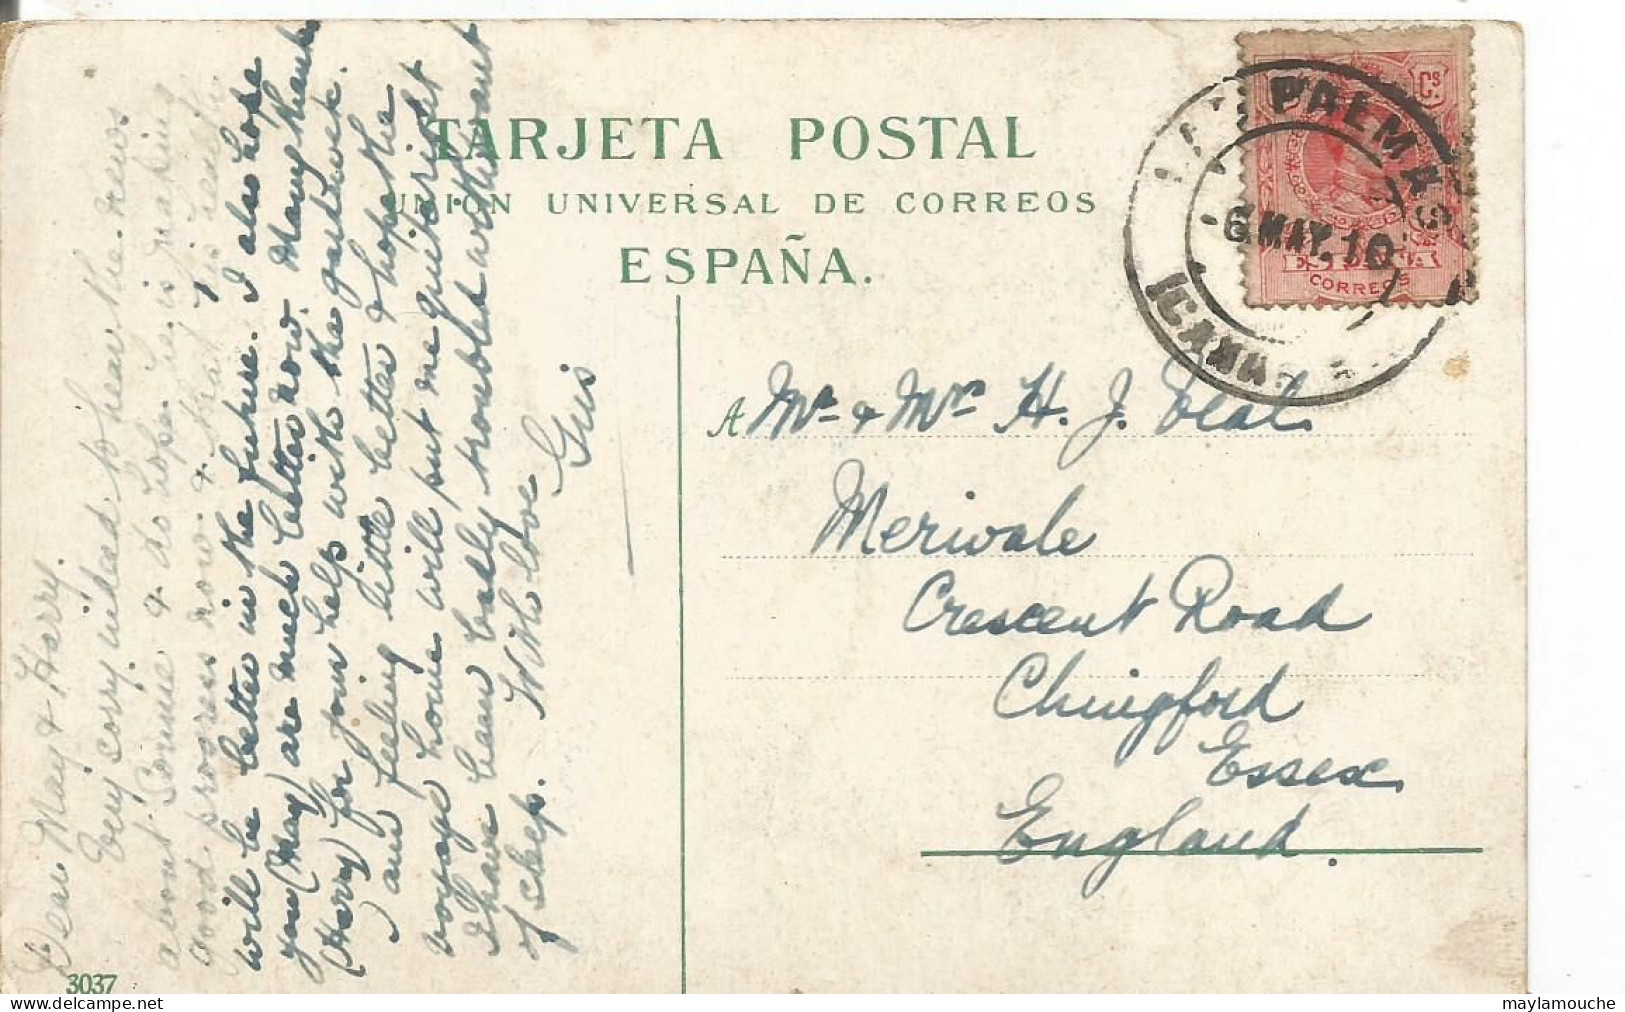 TARJETA POSTAL
UNIÓN UNIVERSAL DE CORREOS
ESPAÑA.
Cs.
CORREOS
LAS PALMAS
6.MAY.10
A Mrs & Mr H. J. Veal.
Merivale
Crescent Road
Chingford
Essex
England.
Dear May & Harry.
Very sorry indeed to hear the news
about & do hope he is making
good progress now & that his health
will be better in the future. I also hope
you (May) are much better now. Many thanks
(Harry) for your help with the
I am feeling little better & hope the
voyage home will put me quite right
I have been badly troubled with want
of sleep. With love
Gus
3037
maylamouche